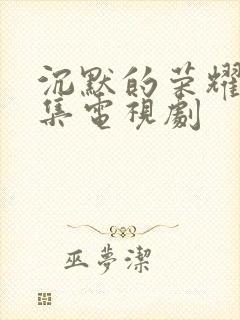 沉默的荣耀
集電視劇
巫夢潔